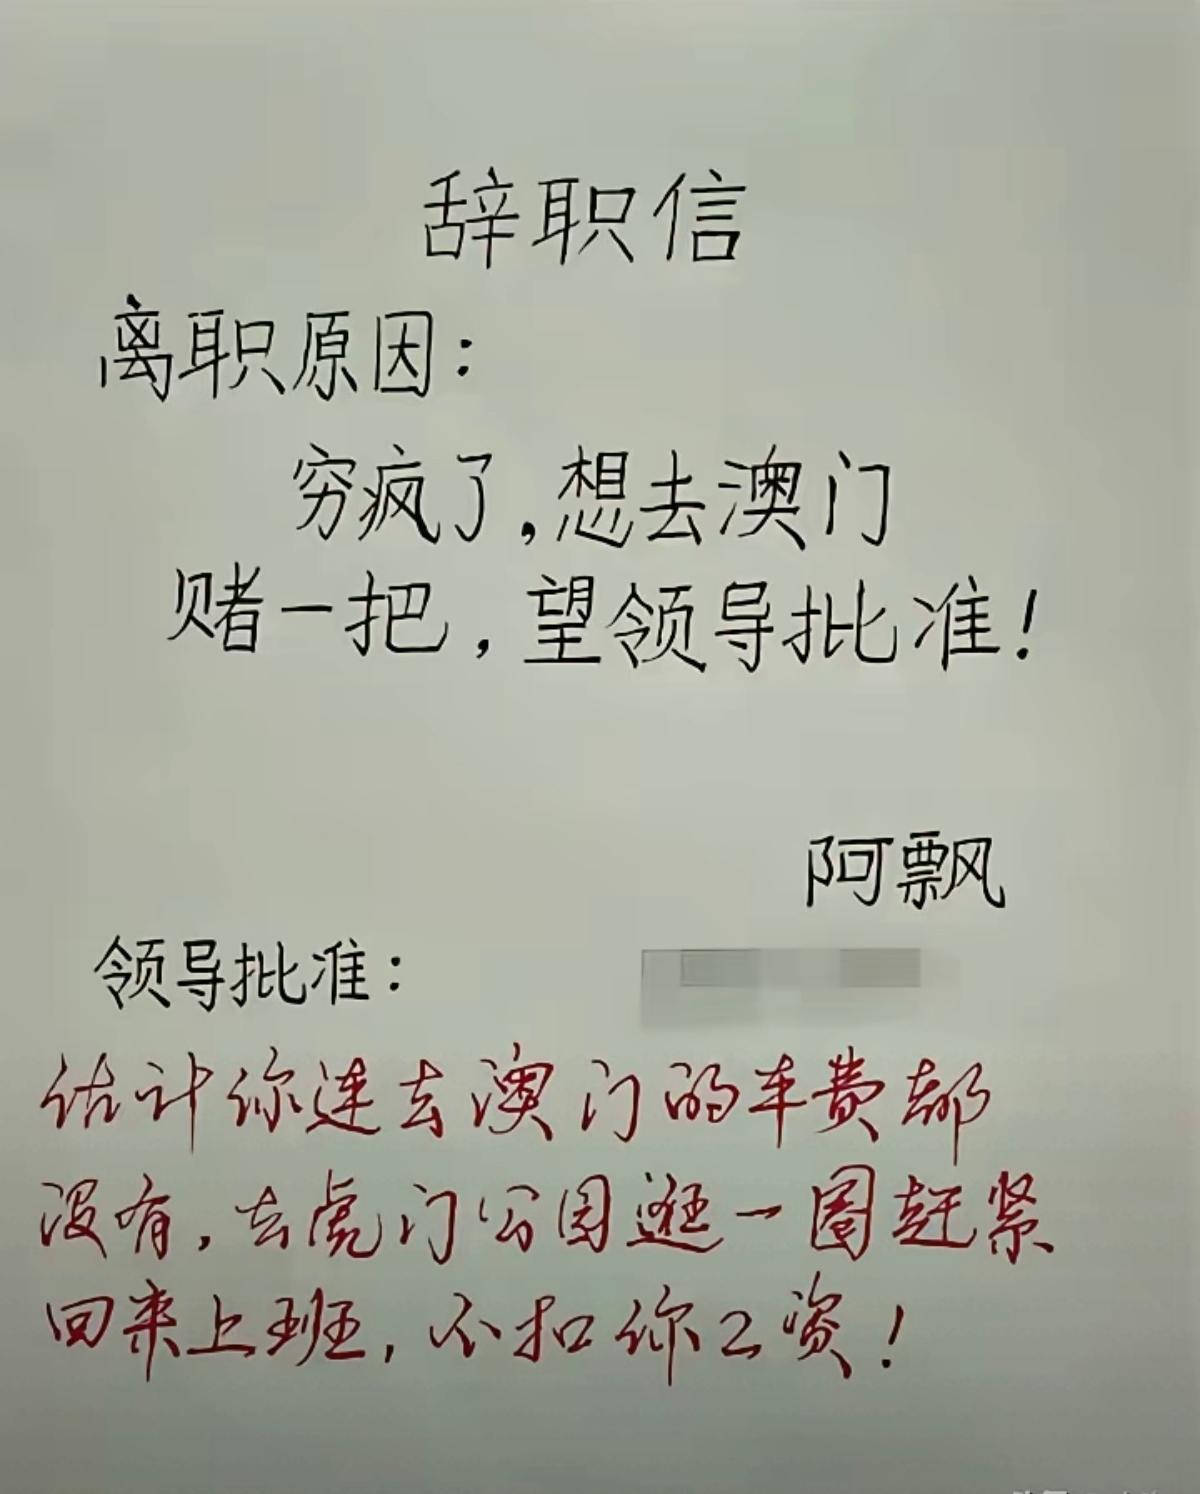 辞职信
离职原因：
穷疯了，想去澳门
赌一把，望领导批准！
阿飘
领导批准：
估计你连去澳门的车费都
没有，去虎门公园逛一圈赶紧
回来上班，不扣你工资！